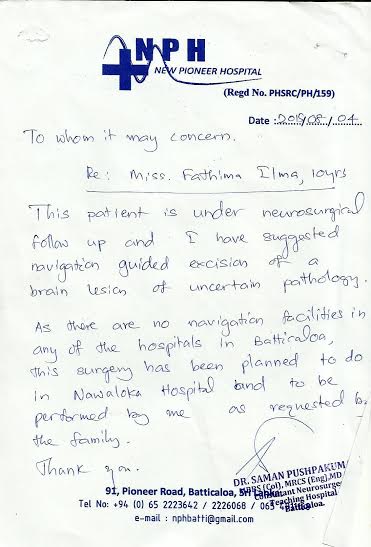 NPH
NEW PIONEER HOSPITAL
(Regd No. PHSRC/PH/159)
Date : 2019/08/04
To whom it may concern.
Re: Miss. Fathima Ilma, 10yrs
This patient is under neurosurgical
follow up and I have suggested
navigation guided excision of a
brain lesion of uncertain pathology.
As there are no navigation facilities in
any of the hospitals in Batticaloa,
this surgery has been planned to do
in Nawaloka Hospital and to be
performed by me as requested by
the family.
Thank you.
DR. SAMAN PUSHPAKUM
MBBS (Col), MRCS (Eng), MD
Consultant Neurosurge
Teaching Hospital
Batticaloa.
91, Pioneer Road, Batticaloa, Sri Lanka.
Tel No: +94 (0) 65 2223642 / 2226068 / 065
e-mail : nphbatti@gmail.com